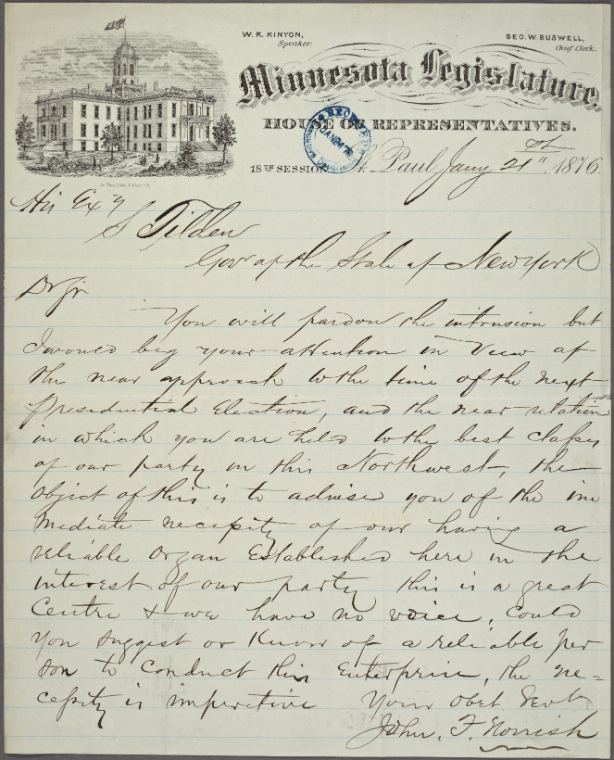 W. R. KINYON,
Speaker.
GEO. W. BUSWELL,
Chief Clerk.
Minnesota Legislature,
HOUSE OF REPRESENTATIVES.
18TH SESSION St. Paul, Jany 21th 1876.
His Exy
S Tilden
Govr of the State of New York
Dr Sir
You will pardon the intrusion but
I would beg your attention in view of
the near approach to the time of the next
Presidential Election, and the near relation
in which you are held to the best classes
of our party in this Northwest, the
object of this is to advise you of the im
mediate necessity of our having a
reliable organ Established here in the
interest of our party this is a great
Centre & we have no voice, Could
you suggest or Know of a reliable per
son to conduct this Enterprise, the ne-
cessity is imperitive Your Obet Servt
John. F. Norrish